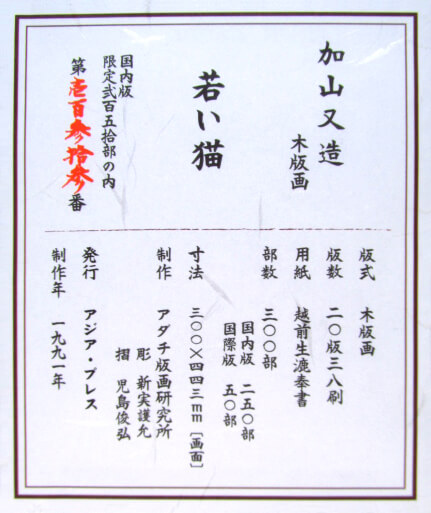 加山又造
木版画
若い猫
国内版
限定弐百五拾部の内
第壱百参拾参番
版式 木版画
版数 二〇版三八刷
用紙 越前生漉奉書
部数 三〇〇部
国内版 二五〇部
国際版 五〇部
寸法 三〇〇×四四三mm[画面]
制作 アダチ版画研究所
彫 新実護允
摺 児島俊弘
発行 アジア・プレス
制作年 一九九一年